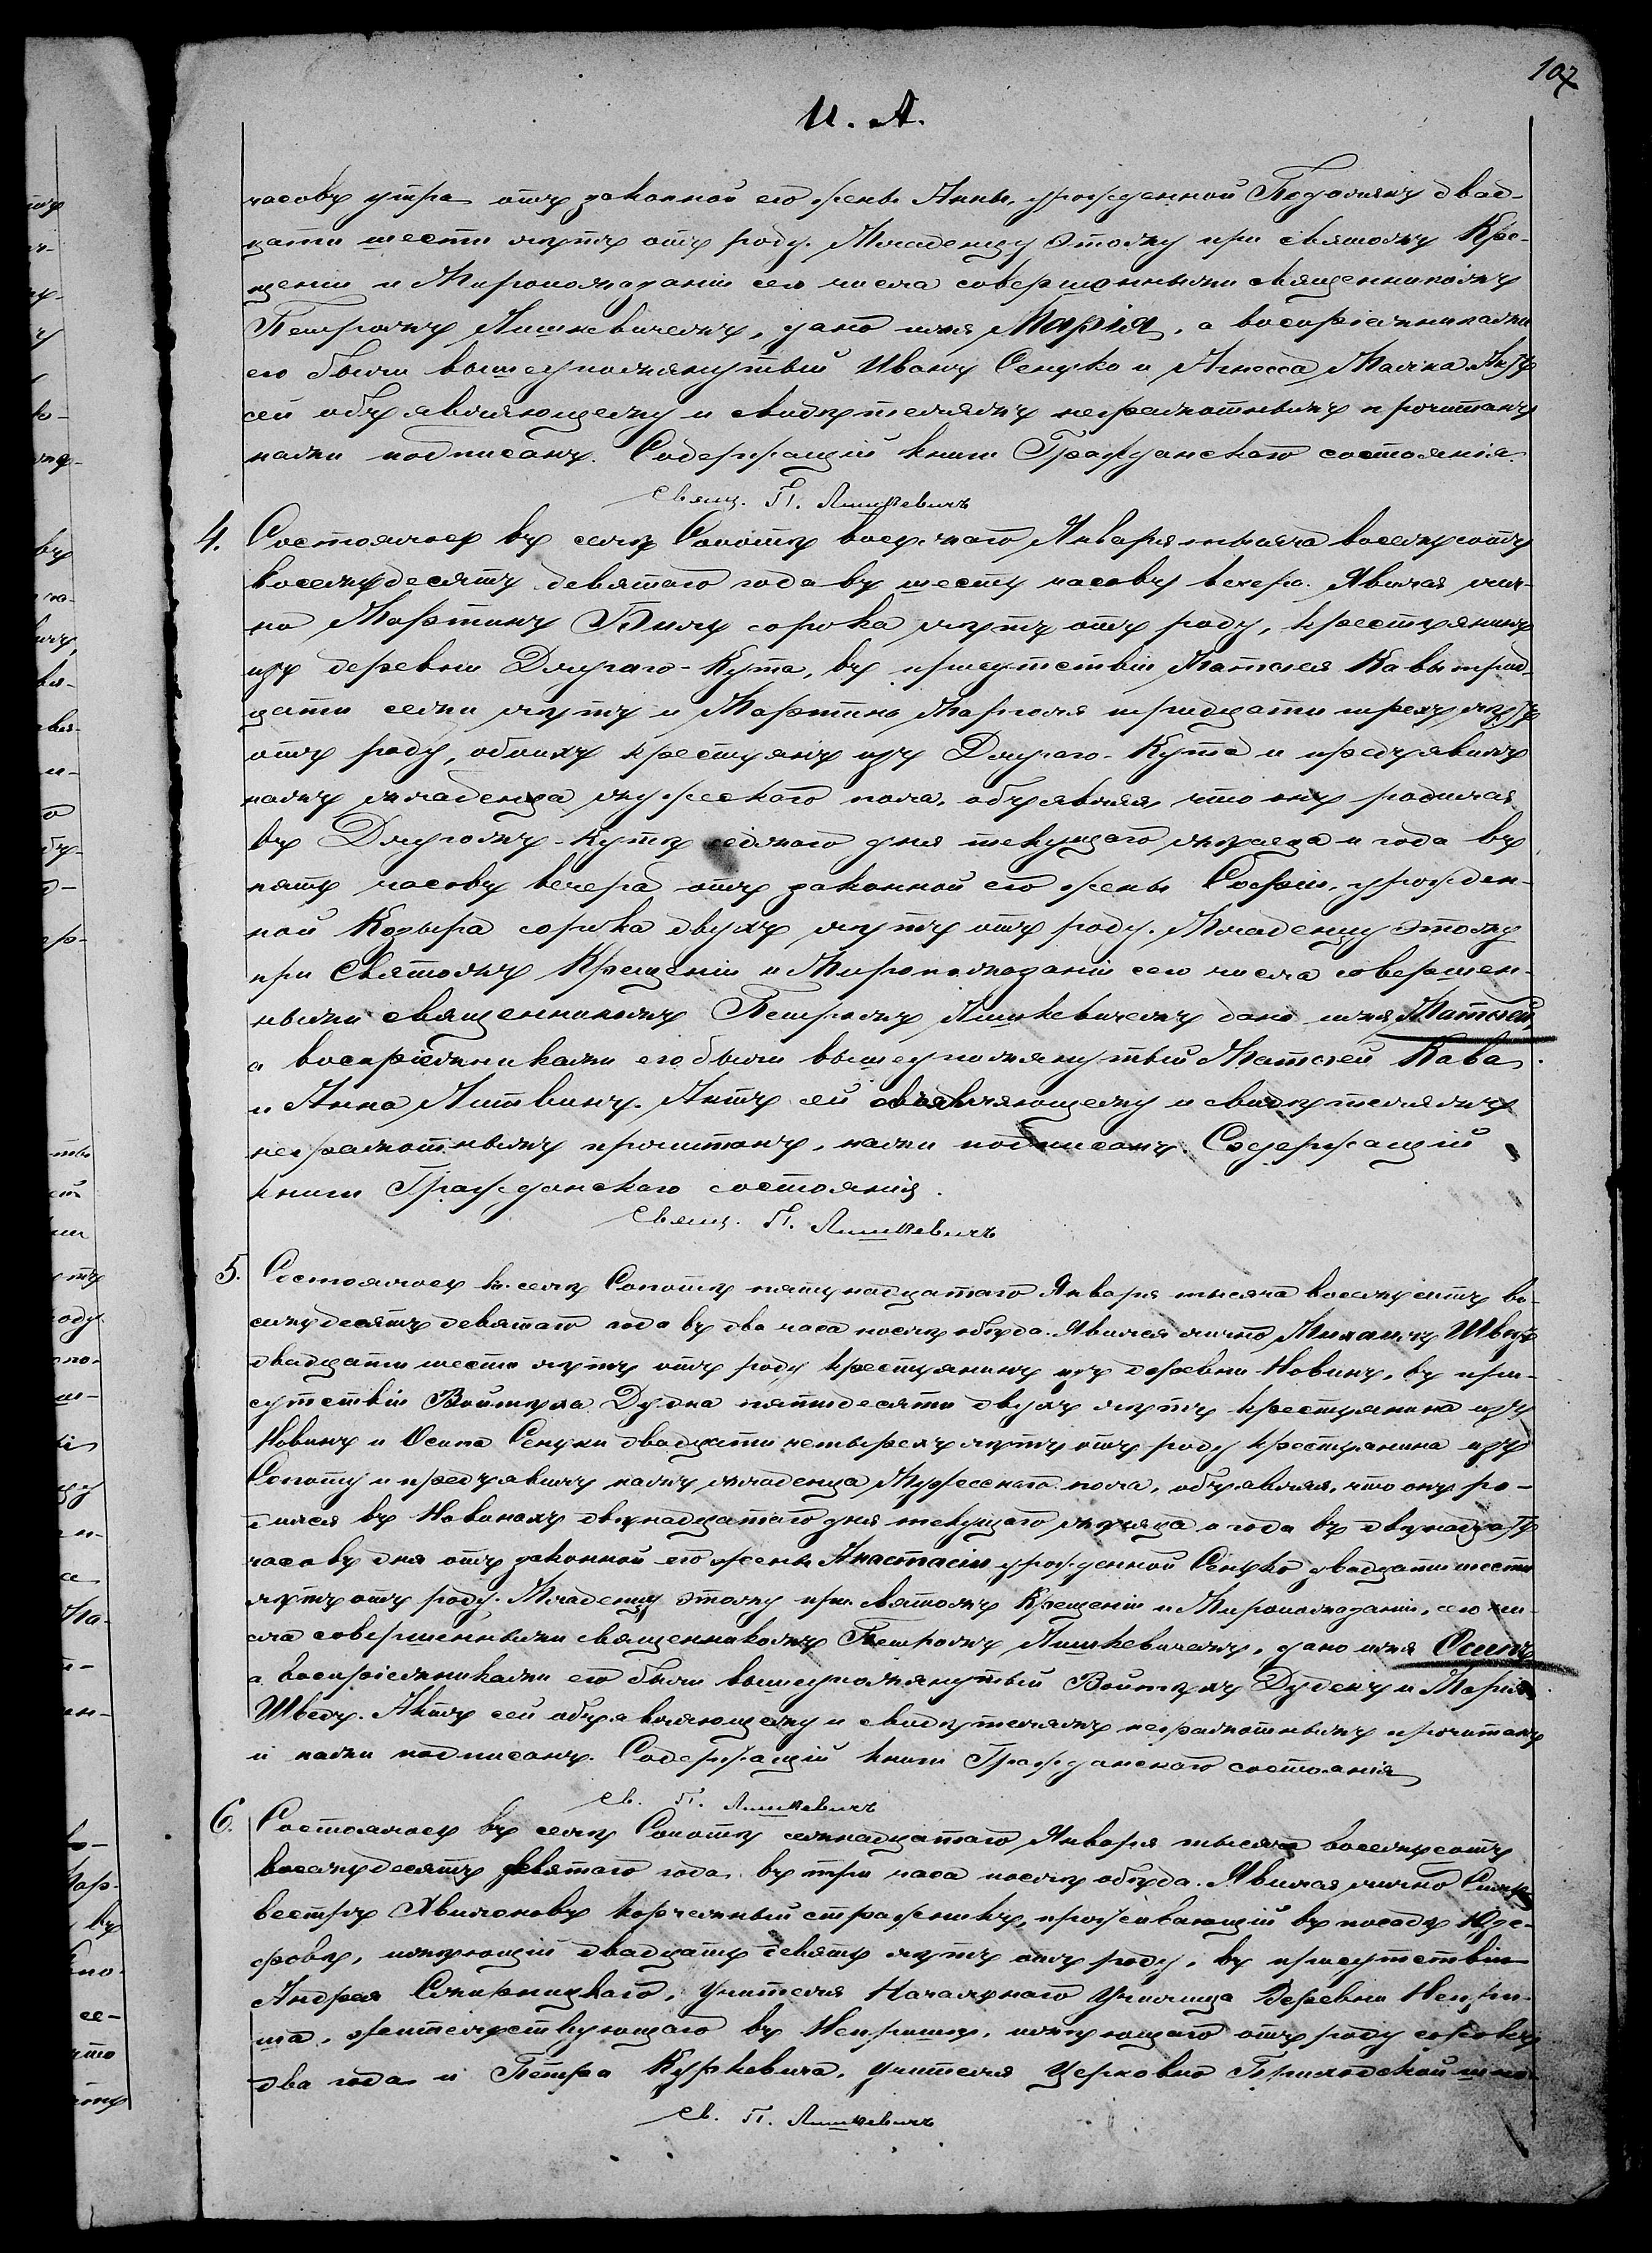 107
И. А.
часовъ утра отъ законной его жены Анны, урожденной Подолякъ двад-
цати шести лѣтъ отъ роду. Младенцу этому при святомъ Кре-
щеніи и Миропомазаніи сего числа совершенными священникомъ
Петромъ Лишкевичемъ, дано имя Марія, а воспріемниками
его были вышеупомянутый Иванъ Сенуко и Агнесса Малка. Актъ
сей объявляющему и свидѣтелямъ неграмотнымъ прочитанъ
нами подписанъ. Содержащій книги Гражданскаго состоянія.
Свящ. П. Лишкевичъ
4. Состоялось въ селѣ Сопотѣ Января тысяча восемьсотъ
восемьдесятъ девятаго года въ шесть часовъ вечера. Явился лич-
но Мартинъ Пилъ сорока лѣтъ отъ роду, крестьянинъ
изъ деревни Длугаго-Кута, въ присутствіи Матѳея Кавы трид-
цати семи лѣтъ и Мартина Марголя тридцати трехъ лѣтъ
отъ роду, обоихъ крестьянъ изъ Длугаго-Кута и предъявилъ
намъ младенца мужескаго пола, объявляя что онъ родился
въ Длугомъ-Кутѣ седмаго дня текущаго мѣсяца и года въ
пять часовъ вечера отъ законной его жены Софіи, урожден-
ной Козыра сорока двухъ лѣтъ отъ роду. Младенцу этому
при Святомъ Крещеніи и Миропомазаніи сего числа совершен-
ными священникомъ Петромъ Лишкевичемъ дано имя Матѳей,
а воспріемниками его были вышеупомянутый Матѳей Кава
и Анна Литвинъ. Актъ сей объявляющему и свидѣтелямъ
неграмотнымъ прочитанъ, нами подписанъ. Содержащій
книги Гражданскаго состоянія.
Свящ. П. Лишкевичъ
5. Состоялось въ селѣ Сопотѣ пятьнадцатаго Января тысяча восемьсотъ во-
семьдесятъ девятаго года въ два часа послѣ обѣда. Явился лично Михаилъ Шведъ
двадцати шести лѣтъ отъ роду крестьянинъ изъ деревни Новинъ, въ при-
сутствіи Войтѣха Дудка пятидесяти двухъ лѣтъ крестьянина изъ
Новинъ и Осипа Сенуки двадцати четырехъ лѣтъ отъ роду крестьянина изъ
Сопоту и предъявилъ намъ младенца Мужескаго пола, объявляя, что онъ ро-
дился въ Новинахъ двѣнадцатаго дня текущаго мѣсяца и года въ двѣнадцать
часовъ дня отъ законной его жены Анастасіи урожденной Сенуко двадцати шести
лѣтъ отъ роду. Младенцу этому при святомъ Крещеніи и Миропомазаніи, сего чи-
сла совершенными священникомъ Петромъ Лишкевичемъ, дано имя Осипъ,
а воспріемниками его были вышеупомянутый Войтѣхъ Дудекъ и Марія
Шведъ. Актъ сей объявляющему и свидѣтелямъ неграмотнымъ прочитанъ
и нами подписанъ. Содержащій книги Гражданскаго состоянія
Св. П. Лишкевичъ
6. Состоялось въ селѣ Сопотѣ семнадцатаго Января тысяча восемьсотъ
восемьдесятъ девятаго года въ три часа послѣ обѣда. Явился лично Силь-
вестръ корчемный стражникъ, проживающій въ посадѣ Юзе-
фовѣ, имѣющій двадцать девять лѣтъ отъ роду, въ присутствіи
Андрея учителя Начальнаго Училища деревни Непри-
ша, жительствующаго въ Непришѣ, имѣющаго отъ роду сорокъ
два года и Петра Куркевича, учителя Церковно Приходской шко-
Св. П. Лишкевичъ